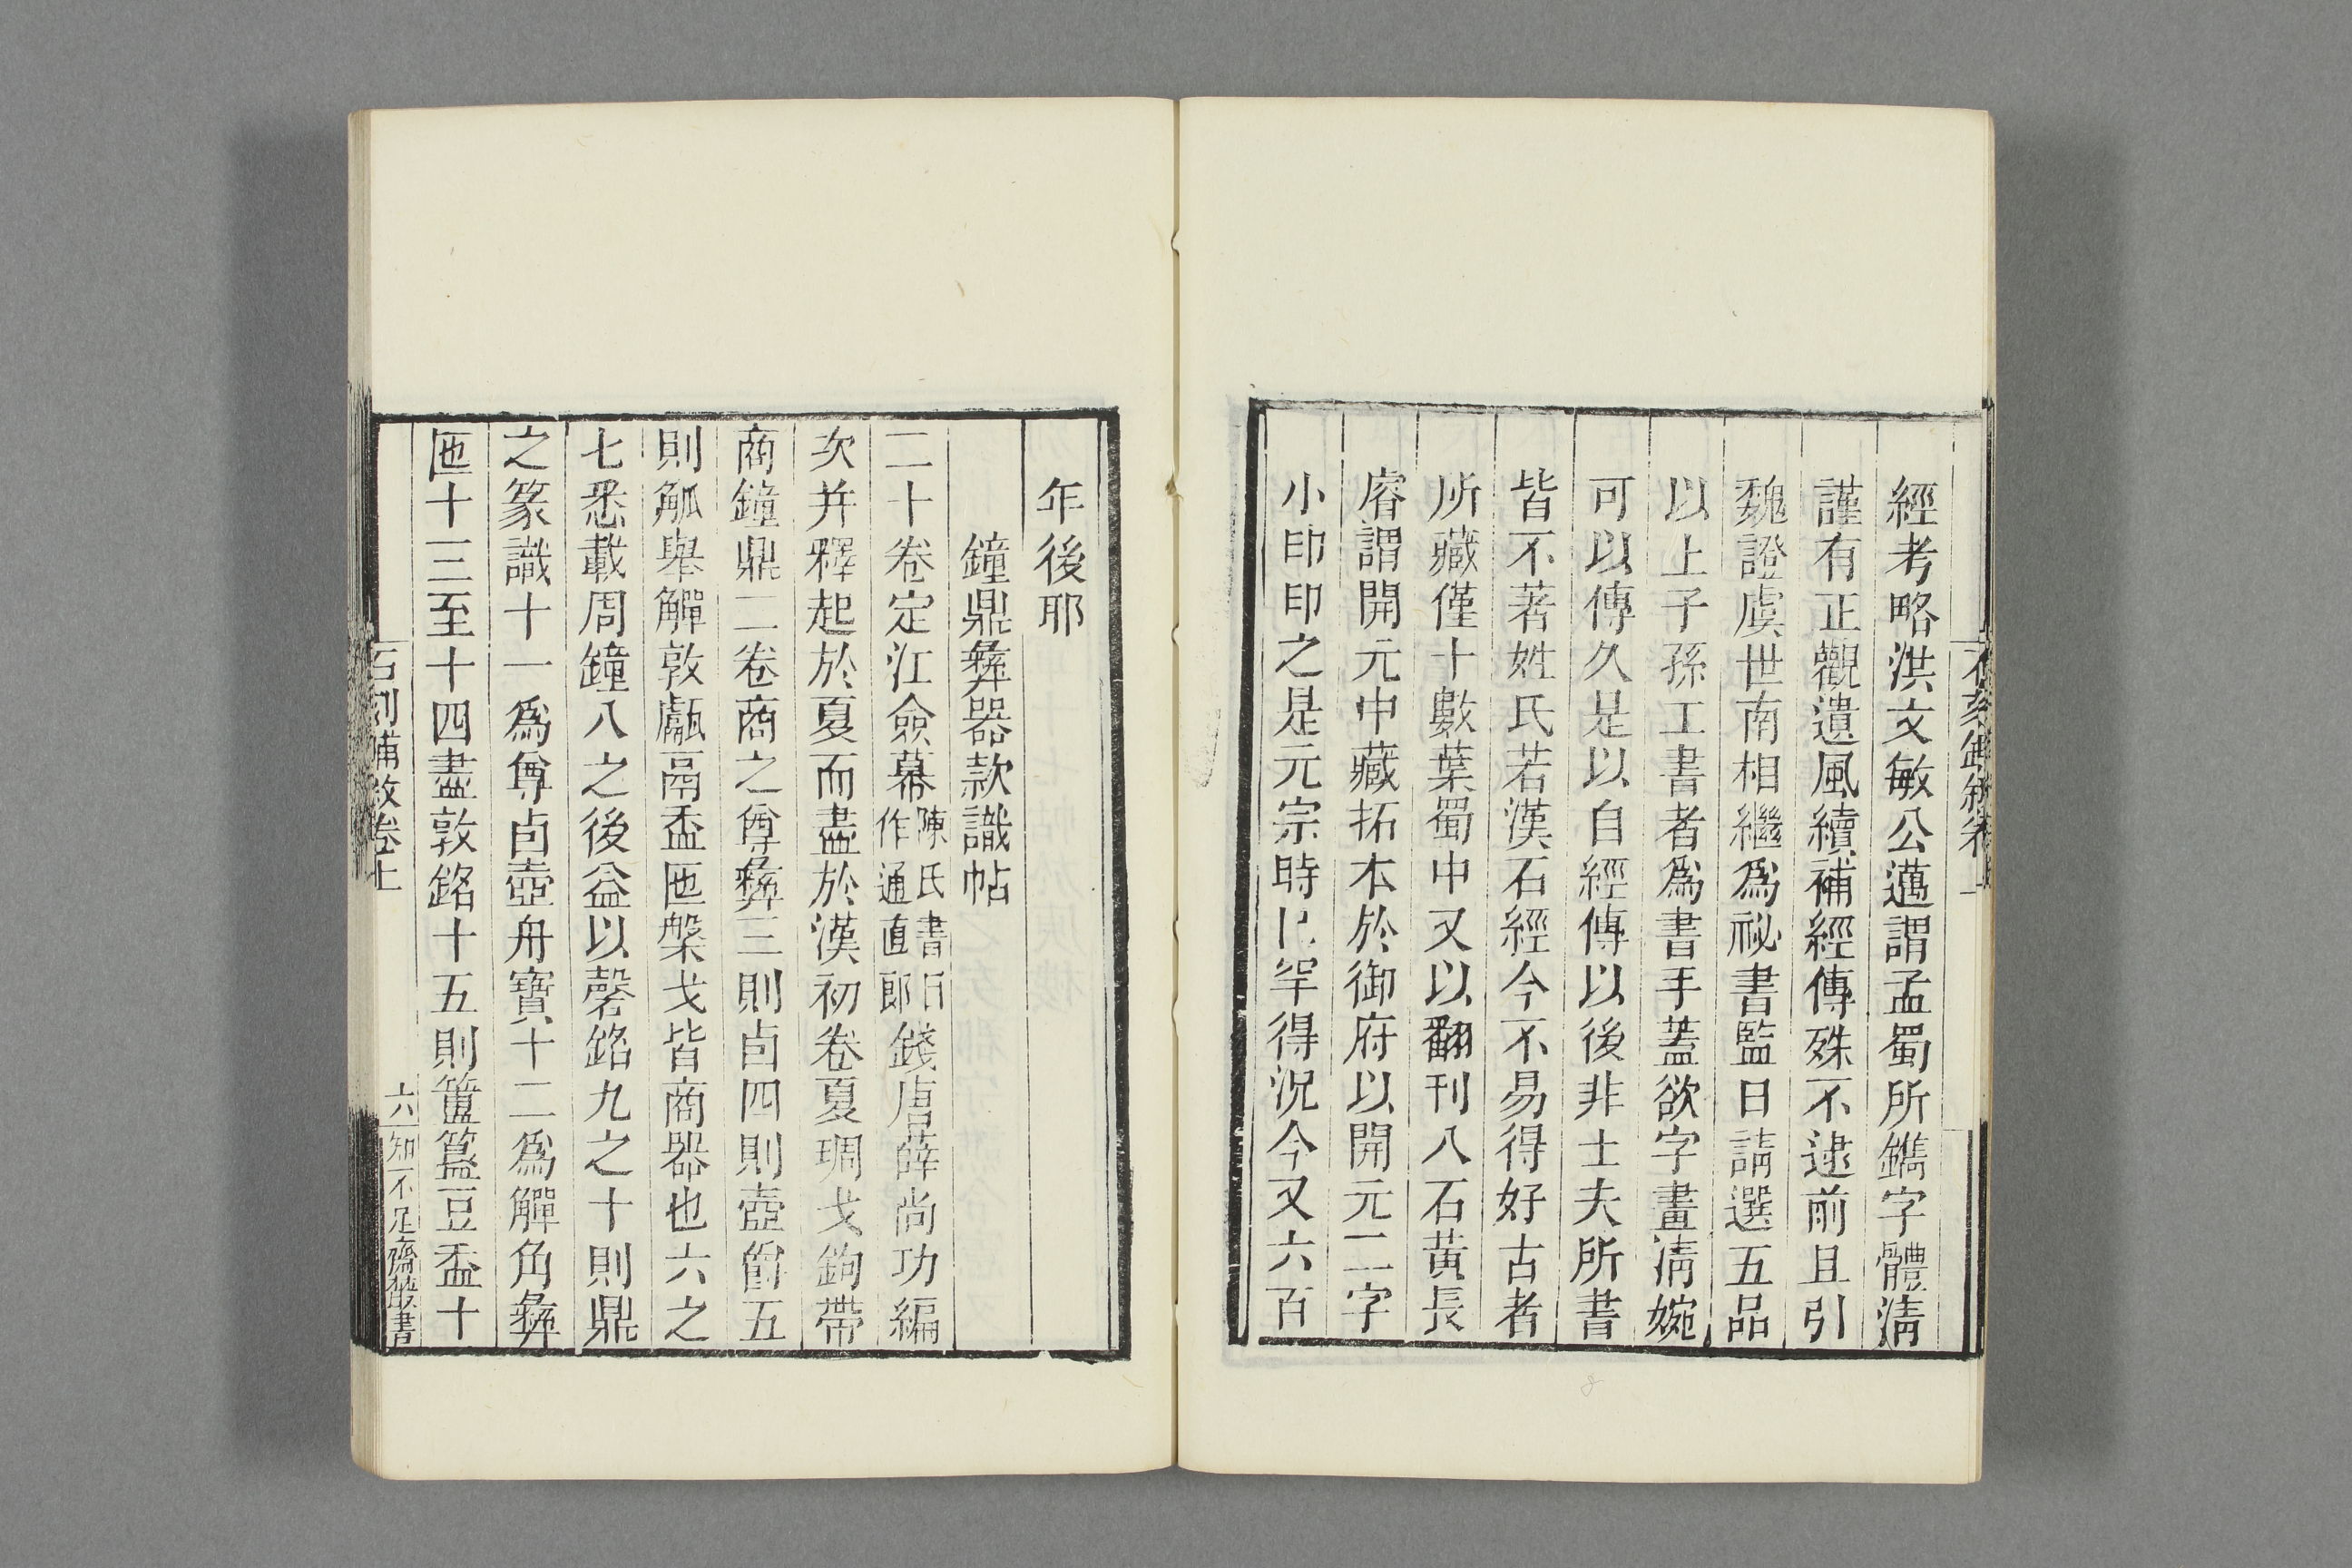 經考略洪文敏公邁謂孟蜀所鐫字體淸
謹有正觀遺風續補經傳殊不逮前且引
魏證虞世南相繼爲祕書監日請選五品
以上子孫工書者爲書手蓋欲字畫淸婉
可以傳久是以自經傳以後非士夫所書
皆不著姓氏若漢石經今不易得好古者
所藏僅十數葉蜀中又以翻刊八石黃長
睿謂開元中藏拓本於御府以開元二字
小印印之是元宗時已罕得況今又六百
年後耶
鐘鼎彝器款識帖
二十卷定江僉幕陳氏書曰作通直郎錢唐薛尚功編
次并釋起於夏而盡於漢初卷夏琱戈鉤帶
商鐘鼎二卷商之尊彝三則卣四則壺爵五
則觚舉觶敦甗鬲盉匜槃戈皆商器也六之
七悉載周鐘八之後益以磬銘九之十則鼎
之篆識十一爲尊卣壺舟寶十二爲觶角彝
匜十三至十四盡敦銘十五則簠簋豆盉十
石刻補敘卷上
六
知不足齋叢書